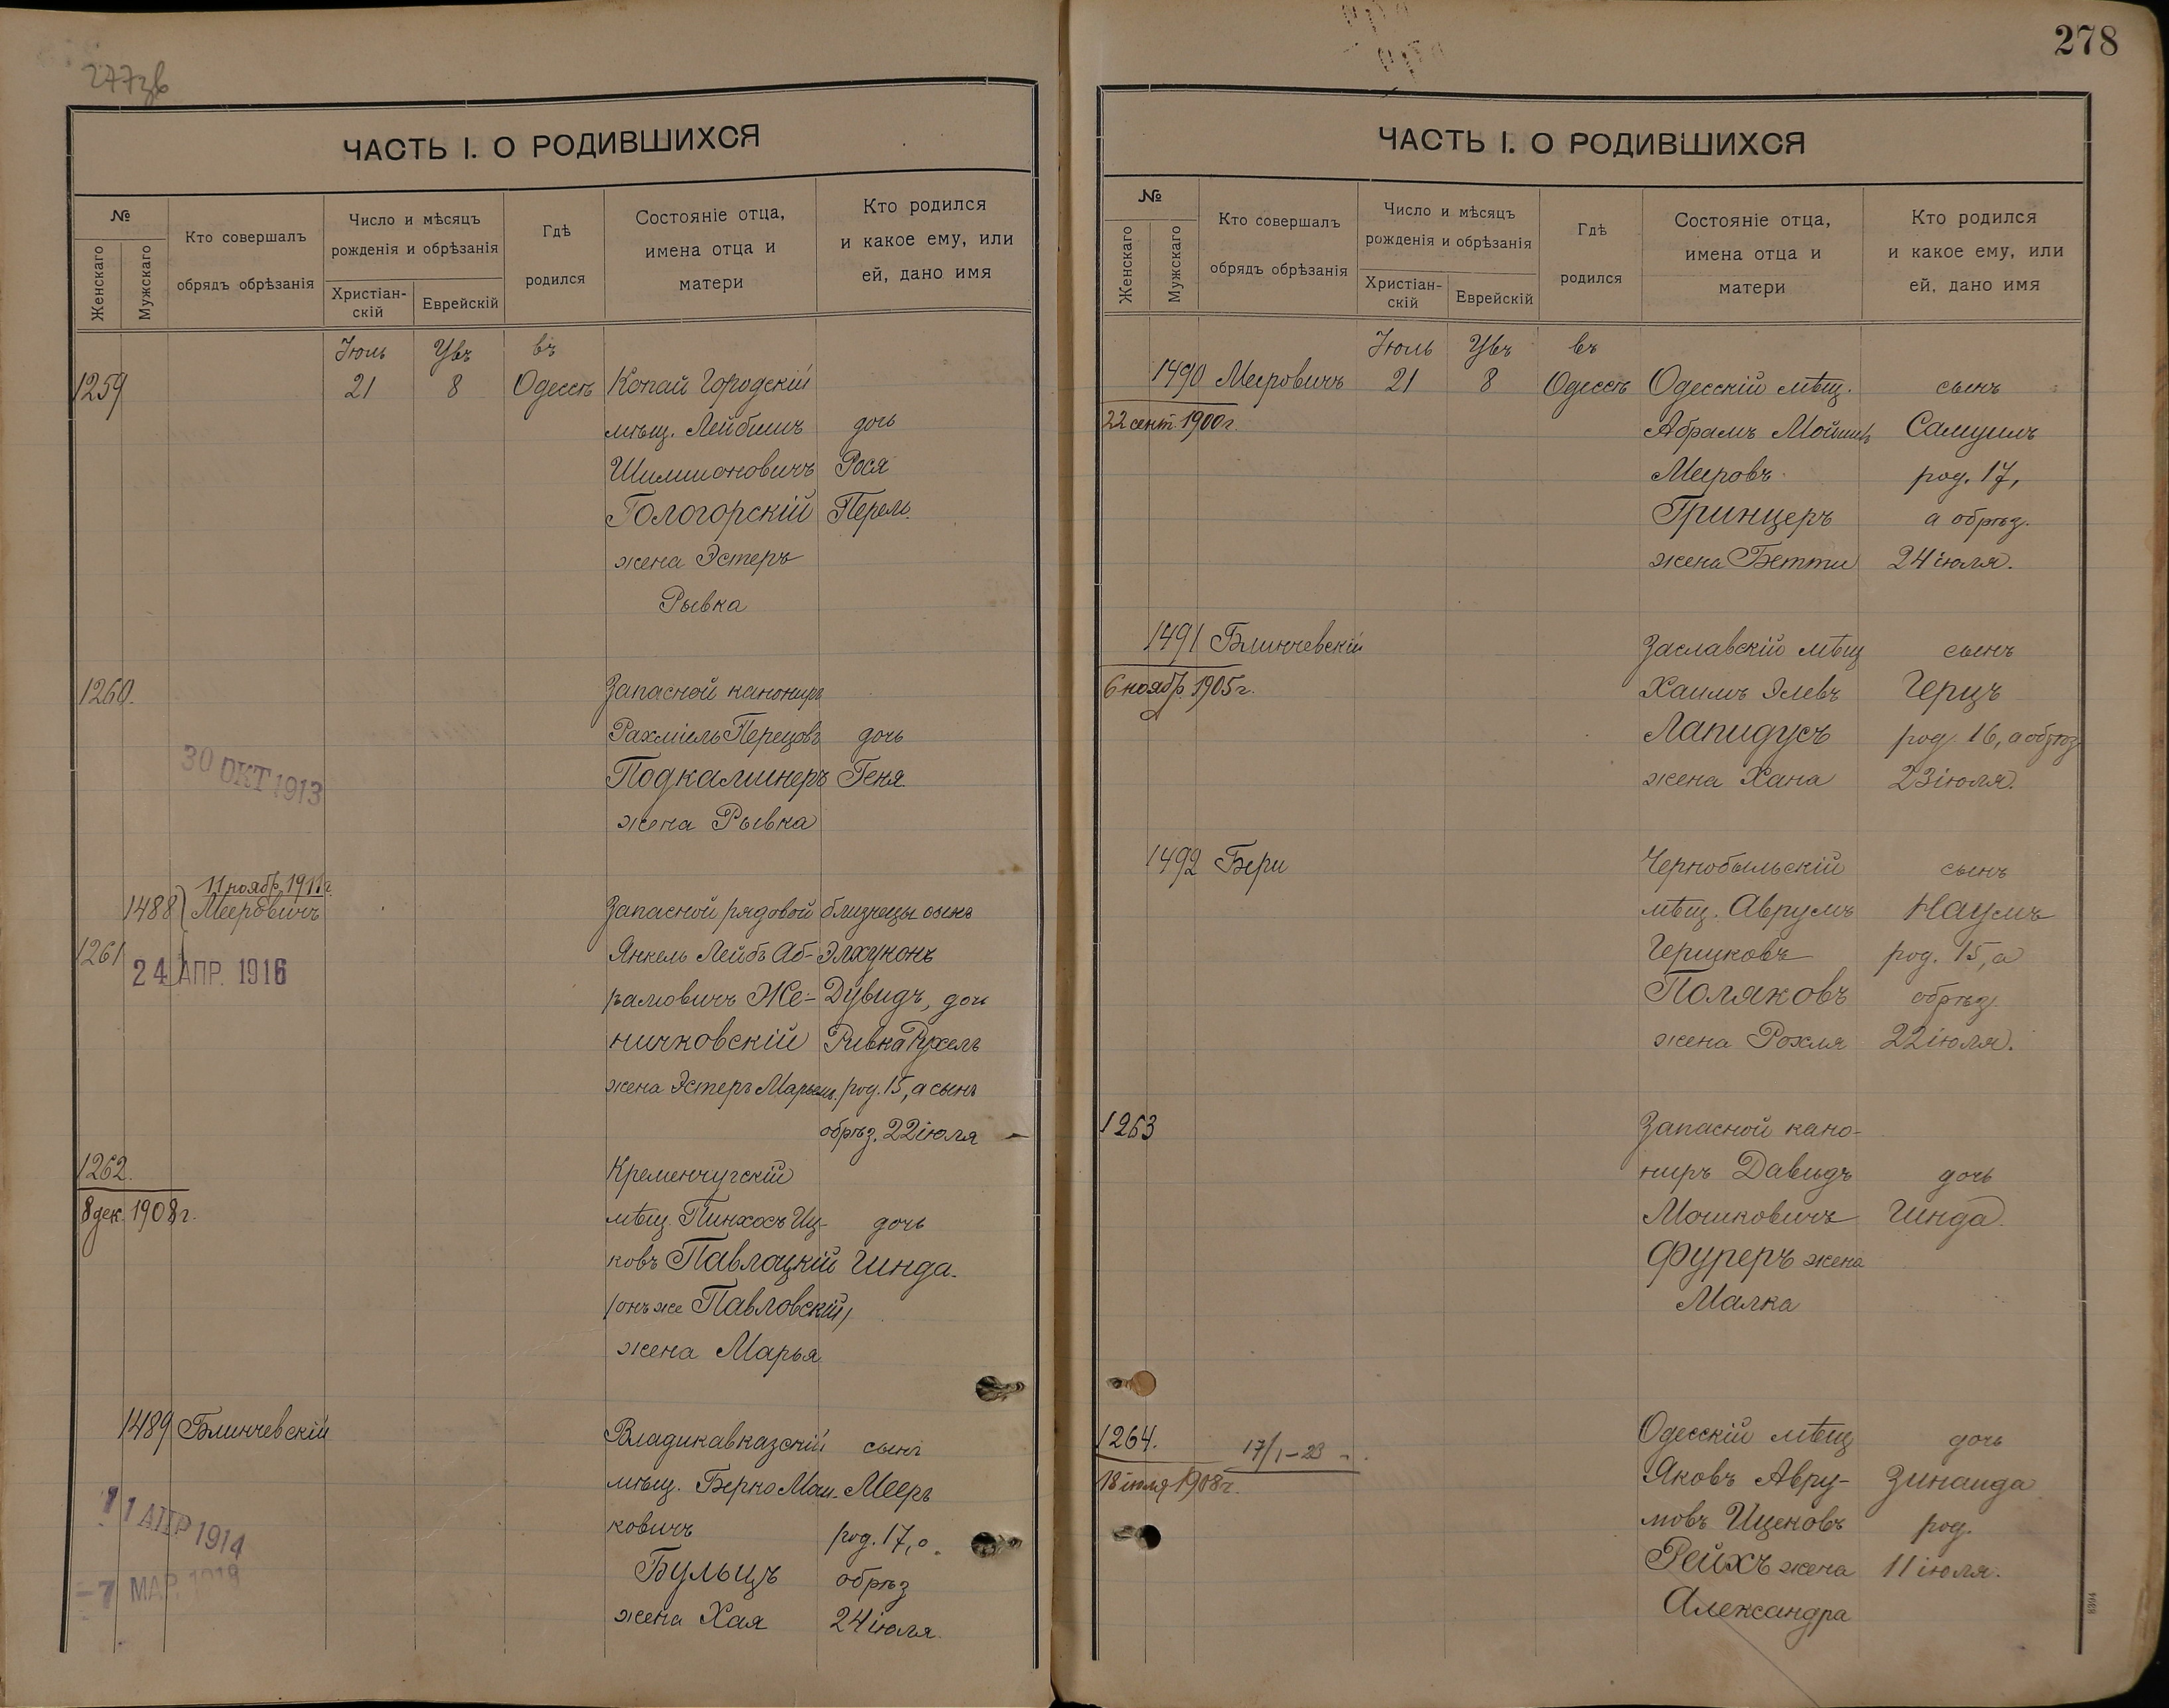 277зв
ЧАСТЬ I. О РОДИВШИХСЯ
№
Женскаго
Мужскаго
Кто совершалъ
обрядъ обрѣзанія
Число и мѣсяцъ
рожденія и обрѣзанія
Христіан-
скій
Еврейскій
Гдѣ
родился
Состояніе отца,
имена отца и
матери
Кто родился
и какое ему, или
ей, дано имя
Іюль Увъ въ
1259 21 8 Одессѣ Копай Городскій
мѣщ. Лейбишъ дочь
Шимшоновичъ Рося
Гологорскій Перель.
жена Эстеръ
Рывка
1260. Запасной канониръ
Рахміель Перецовъ дочь
30 ОКТ 1913
Подкаминеръ Геня.
жена Рывка
11 ноябр. 1911 г.
1488 Мееровичъ Запасной рядовой близнецы сынъ
1261 Янкель Лейбъ Аб- Элхуконъ
24 АПР. 1916
рамовичъ Же- Дувидъ, дочь
ничковскій Ривка Рухель
жена Эстеръ Марьемъ. род. 15, а сынъ
обрѣз. 22 іюля
1262. Кременчугскій
8 дек. 1908 г. мѣщ. Пинхосъ Иц- дочь
ковъ Павлоцкій Гинда.
/онъ же Павловскій/
жена Марья
1489 Блинчевскій Владикавказскій сынъ
мѣщ. Берко Мош- Мееръ
11 АПР 1914
ковичъ род. 17, а
Бульцъ обрѣз
-7 МАР. 1918
жена Хая 24 іюля.
278
ЧАСТЬ I. О РОДИВШИХСЯ
№
Женскаго
Мужскаго
Кто совершалъ
обрядъ обрѣзанія
Число и мѣсяцъ
рожденія и обрѣзанія
Христіан-
скій
Еврейскій
Гдѣ
родился
Состояніе отца,
имена отца и
матери
Кто родился
и какое ему, или
ей, дано имя
Іюль Увъ въ
1490 Мееровичъ 21 8 Одессѣ Одесскій мѣщ. сынъ
22 сент. 1900 г. Абрамъ Мойше Самуилъ
Меировъ род. 17,
Гринцеръ а обрѣз.
жена Бетти 24 іюля.
1491 Блинчевскій Заславскій мѣщ сынъ
6 ноябр. 1905 г. Хаимъ Элевъ Герцъ
Лапидусъ род. 16, а обрѣз
жена Хана 23 іюля.
1492 Бери Чернобыльскій сынъ
мѣщ. Аврумъ Наумъ
Гершковъ род. 15, а
Поляковъ обрѣз.
жена Рохля 22 іюля.
1263 Запасной кано-
ниръ Давидъ дочь
Мошковичъ Гинда.
Фуреръ жена
Малка
1264. 17/I-23 Одесскій мѣщ дочь
18 іюля 1908 г. Яковъ Авру- Зинаида
мовъ Ицековъ род.
Рейхъ жена 11 іюля.
Александра